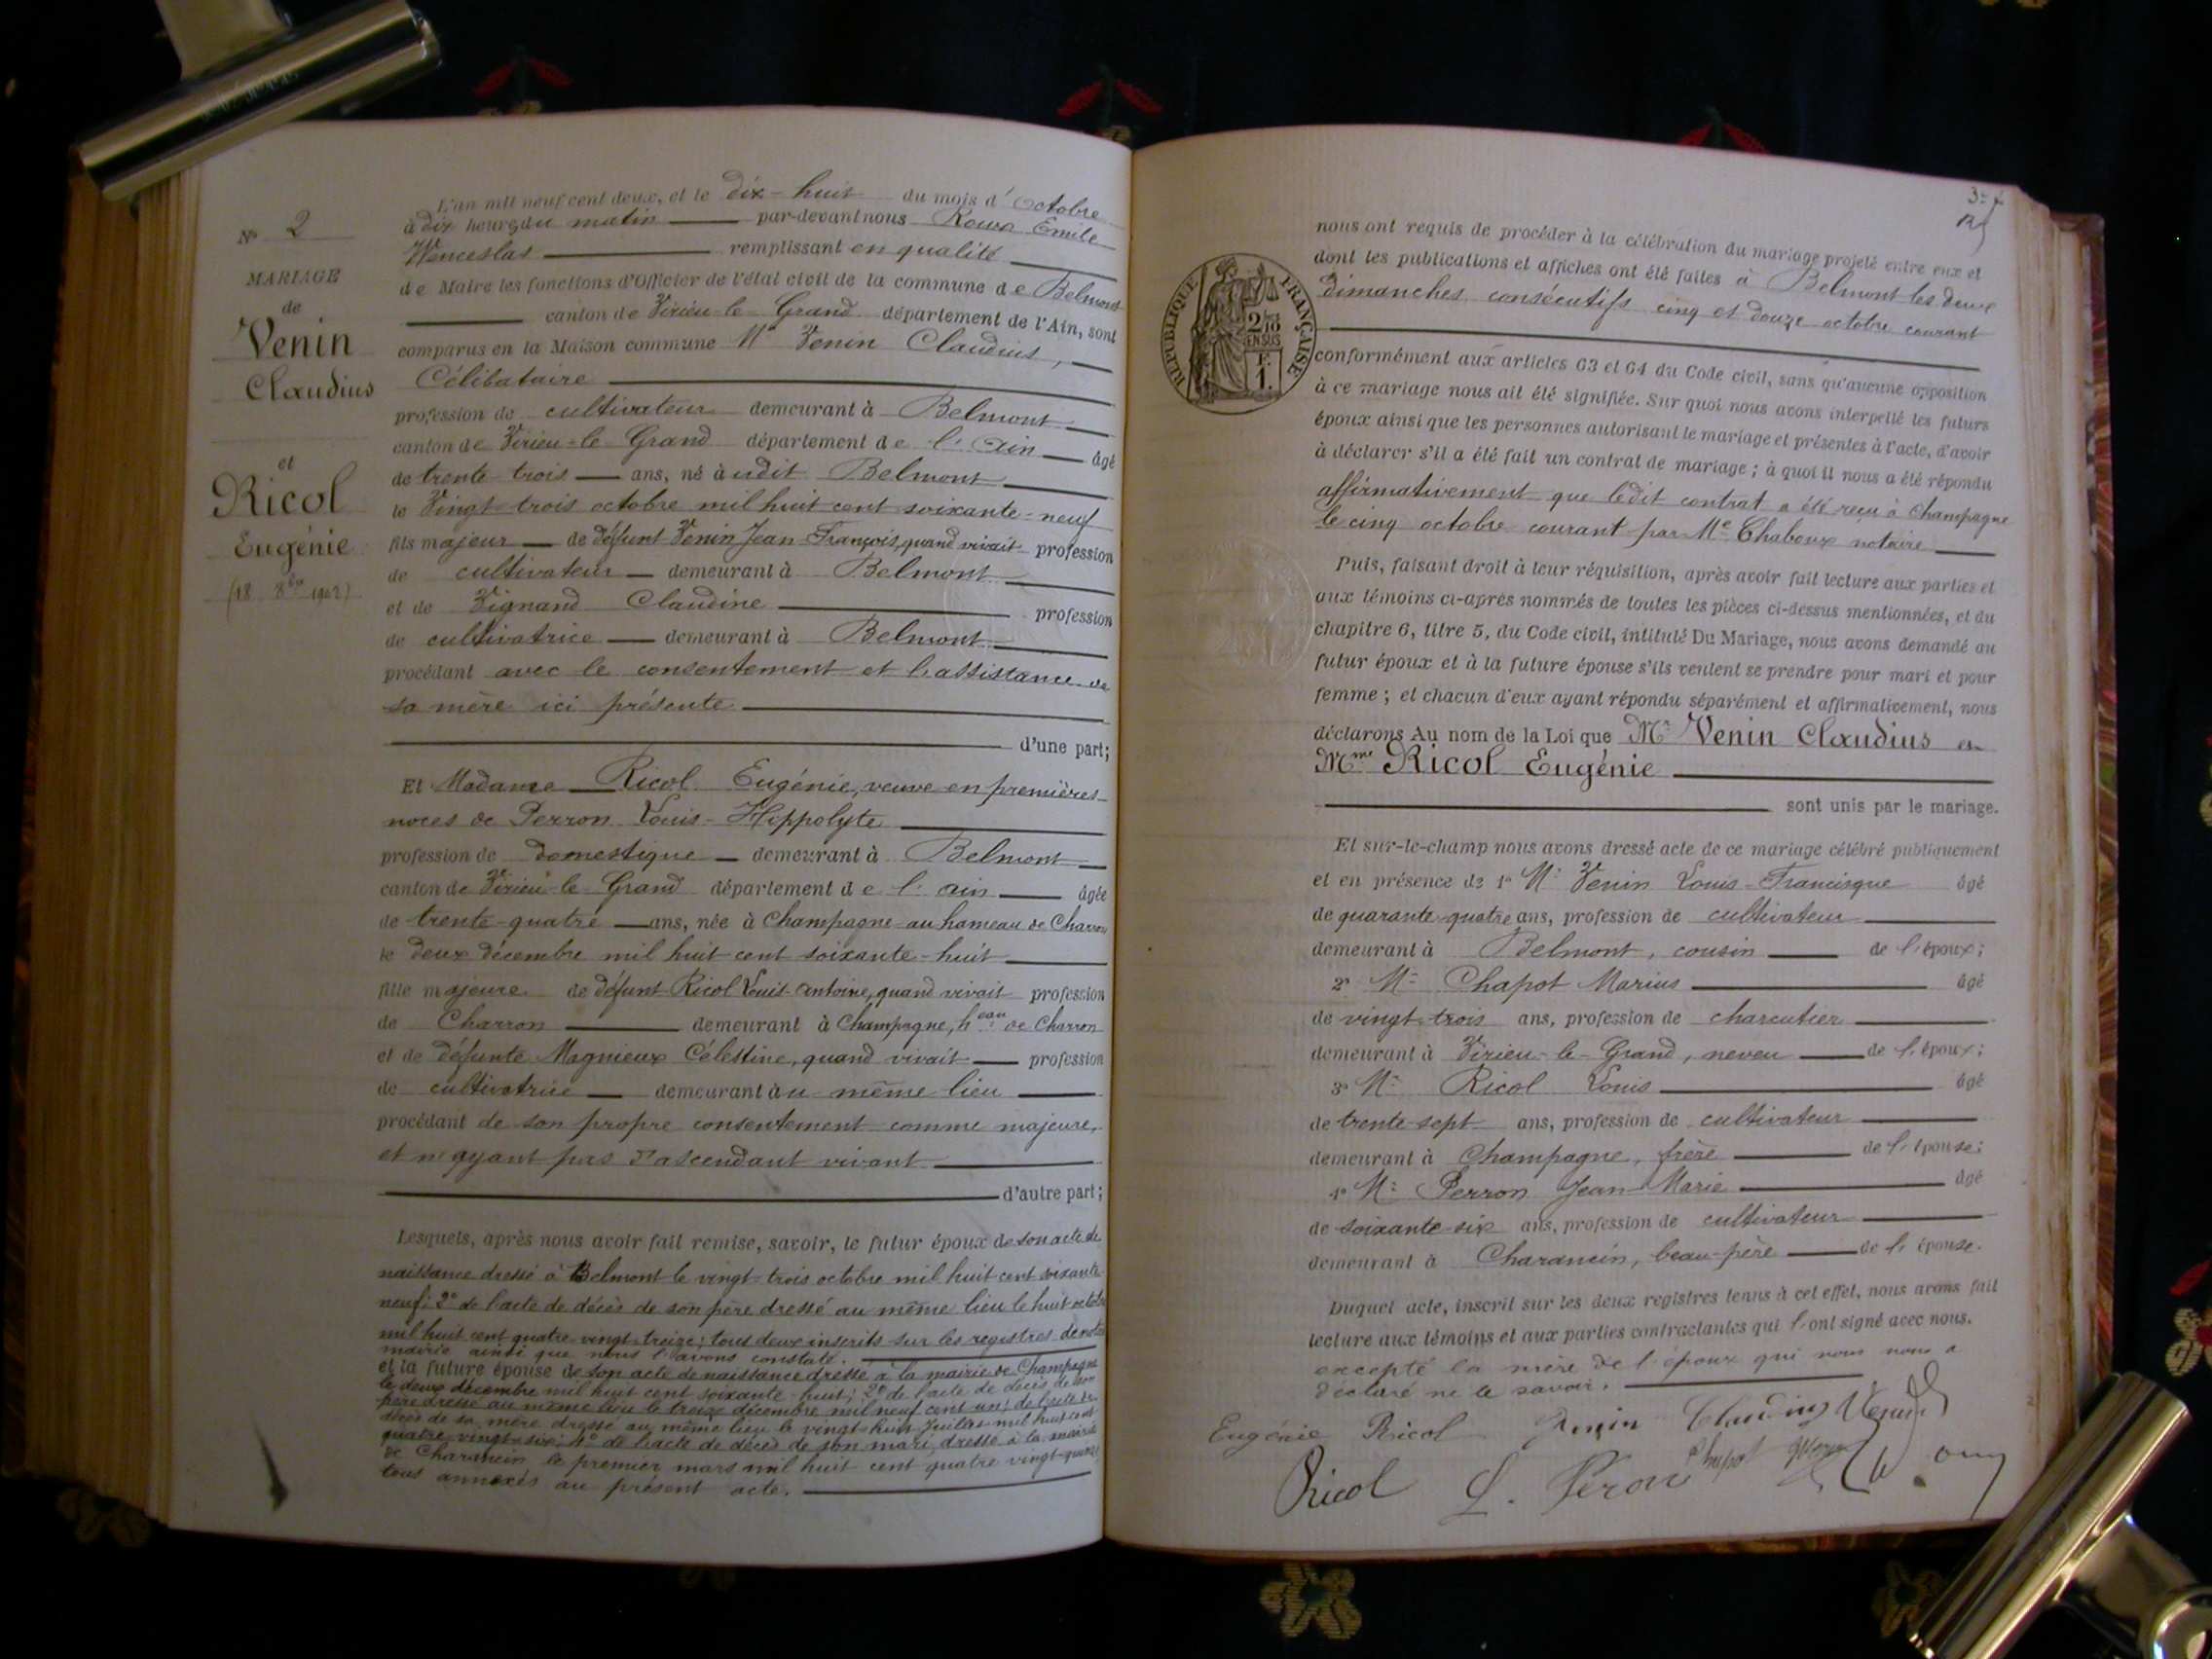 N° 2
MARIAGE
de
Venin
Claudius
et
Ricol
Eugénie
(18 8bre 1902)
L'an mil neuf cent deux, et le dix-huit du mois d'Octobre
à dix heures du matin par-devant nous Roux Emile
Wenceslas remplissant en qualité
de Maire les fonctions d'Officier de l'état civil de la commune de Belmont
canton de Virieu-le-Grand département de l'Ain, sont
comparus en la Maison commune Mr Venin Claudius,
Célibataire
profession de cultivateur demeurant à Belmont
canton de Virieu-le-Grand département de l'Ain âgé
de trente trois ans, né àudit Belmont
le Vingt-trois octobre mil huit cent soixante-neuf
fils majeur de défunt Venin Jean-François, quand vivait profession
de cultivateur demeurant à Belmont
et de Vignand Claudine profession
de cultivatrice demeurant à Belmont
procédant avec le consentement et l'assistance de
sa mère ici présente
d'une part;
Et Madame Ricol Eugénie, veuve en premières
noces de Perron Louis-Hippolyte
profession de domestique demeurant à Belmont
canton de Virieu-le-Grand département de l'ain âgée
de trente-quatre ans, née à Champagne au hameau de Charron
le deux décembre mil huit cent soixante-huit
fille majeure de défunt Ricol Louis-Antoine, quand vivait profession
de Charron demeurant à Champagne, heau de Charron
et de défunte Magnieux Célestine, quand vivait profession
de cultivatrice demeurant àu même lieu
procédant de son propre consentement comme majeure,
et n'ayant pas d'ascendant vivant
d'autre part;
Lesquels, après nous avoir fait remise, savoir, le futur époux de son acte de
naissance dressé à Belmont le vingt-trois octobre mil huit cent soixante
neuf; 2° de l'acte de décès de son père dressé au même lieu le huit octobre
mil huit cent quatre-vingt-treize; tous deux inscrits sur les registres de notre
mairie ainsi que nous l'avons constaté.
et la future épouse de son acte de naissance dressé à la mairie de Champagne
le deux décembre mil huit cent soixante-huit; 2° de l'acte de décès de son
père dressé au même lieu le treize décembre mil neuf cent un; de l'acte de
décès de sa mère dressé au même lieu le vingt-huit Juillet mil huit cent
quatre-vingt-six; 4° de l'acte de décès de son mari, dressé à la mairie
de Charancin le premier mars mil huit cent quatre vingt-quinze
tous annexés au présent acte.
RÉPUBLIQUE FRANÇAISE
2/10
EN SUS
F.
1.
nous ont requis de procéder à la célébration du mariage projeté entre eux et
dont les publications et affiches ont été faites à Belmont les deux
dimanches consécutifs cinq et douze octobre courant
conformément aux articles 63 et 64 du Code civil, sans qu'aucune opposition
à ce mariage nous ait été signifiée. Sur quoi nous avons interpellé les futurs
époux ainsi que les personnes autorisant le mariage et présentes à l'acte, d'avoir
à déclarer s'il a été fait un contrat de mariage; à quoi il nous a été répondu
affirmativement que ledit contrat a été reçu à Champagne
le cinq octobre courant par Me Chaboux notaire
Puis, faisant droit à leur réquisition, après avoir fait lecture aux parties et
aux témoins ci-après nommés de toutes les pièces ci-dessus mentionnées, et du
chapitre 6, titre 5, du Code civil, intitulé Du Mariage, nous avons demandé au
futur époux et à la future épouse s'ils veulent se prendre pour mari et pour
femme; et chacun d'eux ayant répondu séparément et affirmativement, nous
déclarons Au nom de la Loi que Mr Venin Claudius et
Mme Ricol Eugénie
sont unis par le mariage.
Et sur-le-champ nous avons dressé acte de ce mariage célébré publiquement
et en présence de 1° Mr Venin Louis-Francisque âgé
de quarante-quatre ans, profession de cultivateur
demeurant à Belmont, cousin de l'époux;
2° Mr Chapot Marius âgé
de vingt-trois ans, profession de charcutier
demeurant à Virieu-le-Grand, neveu de l'époux;
3° Mr Ricol Louis âgé
de trente-sept ans, profession de cultivateur
demeurant à Champagne, frère de l'épouse;
4° Mr Perron Jean-Marie âgé
de soixante-six ans, profession de cultivateur
demeurant à Charancin, beau-père de l'épouse.
Duquel acte, inscrit sur les deux registres tenus à cet effet, nous avons fait
lecture aux témoins et aux parties contractantes qui l'ont signé avec nous.
excepté la mère de l'époux qui nous nous a
déclaré ne le savoir.
Eugénie Ricol Venin Claudius Venin
Ricol Peron Chapot